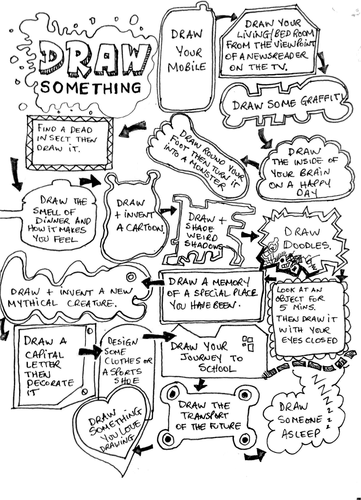 DRAW
SOMETHING
DRAW
YOUR
MOBILE
DRAW YOUR
LIVING/BED ROOM
FROM THE VIEWPOINT
OF A NEWSREADER
ON THE TV.
DRAW SOME GRAFFITI
DRAW
THE INSIDE OF
YOUR BRAIN
ON A HAPPY
DAY
DRAW ROUND YOUR
FOOT THEN TURN IT
INTO A MONSTER
FIND A DEAD
INSECT THEN
DRAW IT.
DRAW THE
SMELL OF
DINNER AND
HOW IT MAKES
YOU FEEL
DRAW
+ INVENT
A CARTOON.
DRAW +
SHADE
WEIRD
SHADOWS
DRAW
DOODLES.
LOOK AT AN
OBJECT FOR
5 MINS.
THEN DRAW IT
WITH YOUR
EYES CLOSED
DRAW A MEMORY
OF A SPECIAL PLACE
YOU HAVE BEEN.
DRAW + INVENT A NEW
MYTHICAL CREATURE.
DRAW A
CAPITAL
LETTER
THEN
DECORATE
IT
DESIGN
SOME
CLOTHES OR
A SPORTS
SHOE
DRAW YOUR
JOURNEY TO
SCHOOL
DRAW THE
TRANSPORT
OF THE FUTURE
DRAW
SOMEONE
ASLEEP
ZZZ
DRAW
SOMETHING
YOU LOVE
DRAWING